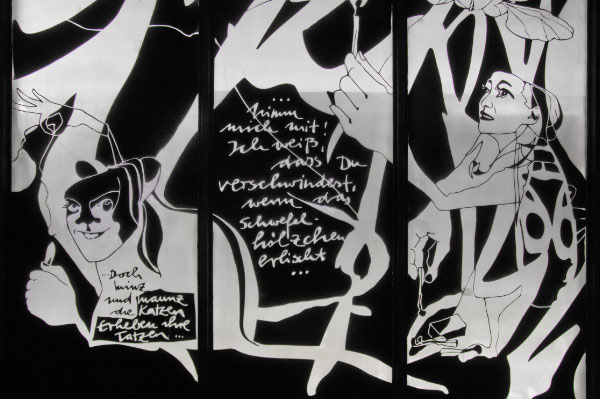 ...Doch
minz
und maunz
die Katzen
Erheben ihre
Tatzen...
...
nimm
mich mit!
Ich weiß,
dass Du
verschwindest,
wenn das
Schwefel-
hölzchen
erlischt
...